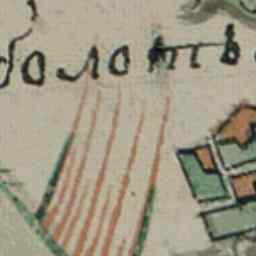 болотъ